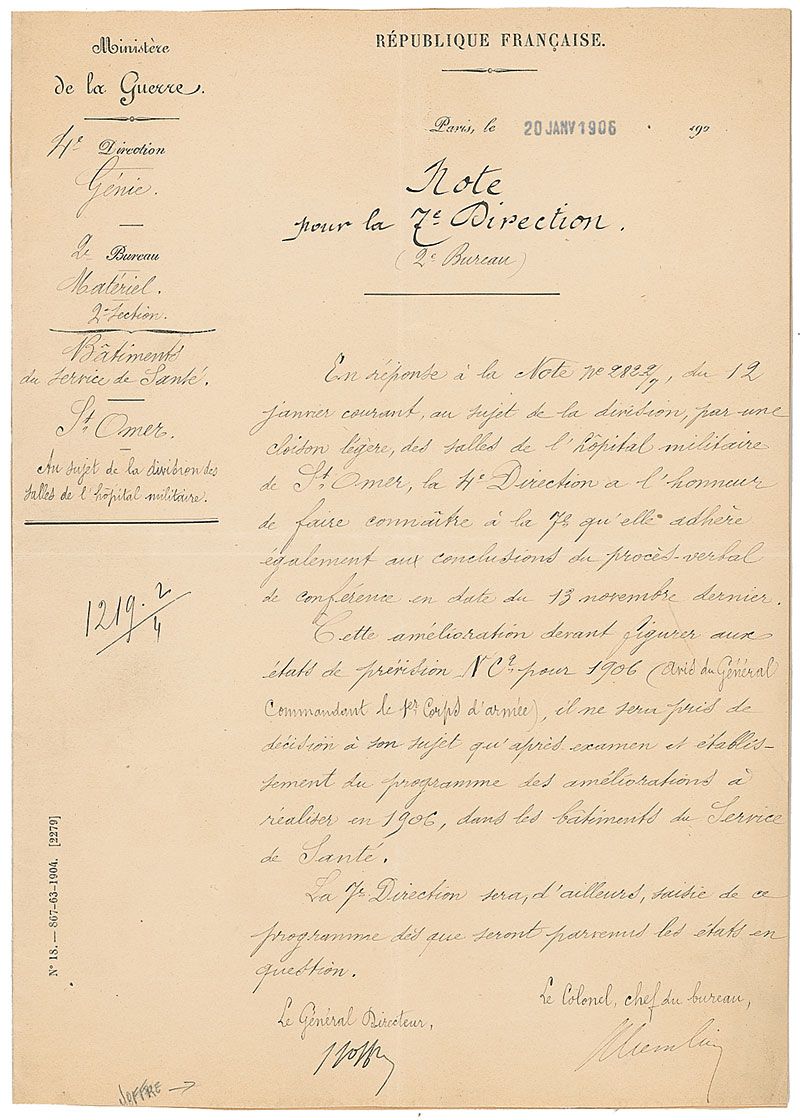 Ministère
de la Guerre.
4e Direction
Génie.
2e Bureau
Matériel.
2e Section.
Bâtiments
du service de Santé.
St Omer.
Au sujet de la division des
salles de l'hôpital militaire.
1219. 2/4
N° 18. — 867-63-1904. [2279]
RÉPUBLIQUE FRANÇAISE.
Paris, le 20 JANV 1906 190
Note
pour la 7e Direction.
(2e Bureau)
En réponse à la Note No 2822/7, du 12
janvier courant, au sujet de la division, par une
cloison légère, des salles de l'hôpital militaire
de St Omer, la 4e Direction a l'honneur
de faire connaître à la 7e qu'elle adhère
également aux conclusions du procès-verbal
de conférence en date du 13 novembre dernier.
Cette amélioration devant figurer aux
états de prévision pour 1906 (avis du Général
Commandant le 1er Corps d'armée), il ne sera pris de
décision à son sujet qu'après examen et établis-
sement du programme des améliorations à
réaliser en 1906, dans les bâtiments du Service
de Santé.
La 7e Direction sera, d'ailleurs, saisie de ce
programme dès que seront parvenus les états en
question.
Le Général Directeur,
Le Colonel, chef du bureau,
Joffre
JOFFRE →